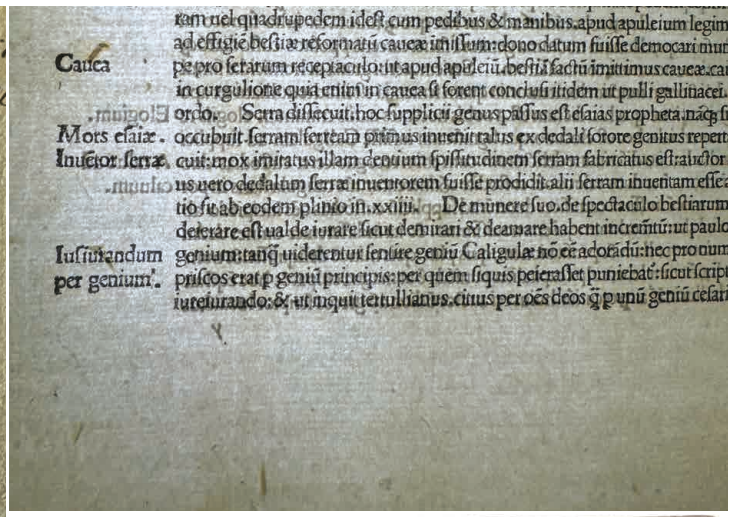 ram uel quadrupedem idest cum pedibus & manibus. apud apuleium legim
ad effigiē bestiæ reformatū caueæ īmissum: dono datum fuisse democari mur
Cauea pe pro ferarum receptaculo: ut apud apuleiū. bestiā factū imittimus caueæ. ca
in curgulione quia enim in cauea si forent conclusi itidem ut pulli gallinacei.
ordo. Serra dissecuit. hoc supplicii genus passus est esaias propheta. nāq; si
Mors esaiæ. occubuit. serram ferream primus inuenit talus ex dedali sorore genitus repert
Inuētor serræ cuit: mox imitatus illam dentium spissitudinem serram fabricatus est: auctor
us uero dedalum serræ inuentorem fuisse prodidit. alii serram inuentam esse a
tio sit ab eodem plinio in. xxiiii. De munere suo. de spectaculo bestiarum
deierare est ualde iurare sicut demirari & deamare habent incremētū: ut paulo
Iusiurandum genium: tanq̄ uiderentur sentire geniū Caligulæ nō eē adorādū: nec pro num
per genium. priscos erat p geniū principis: per quem siquis peierasset puniebat: sicut script
iureiurando: & ut inquit tertullianus. citius per oēs deos q̄ p unū geniū cesari